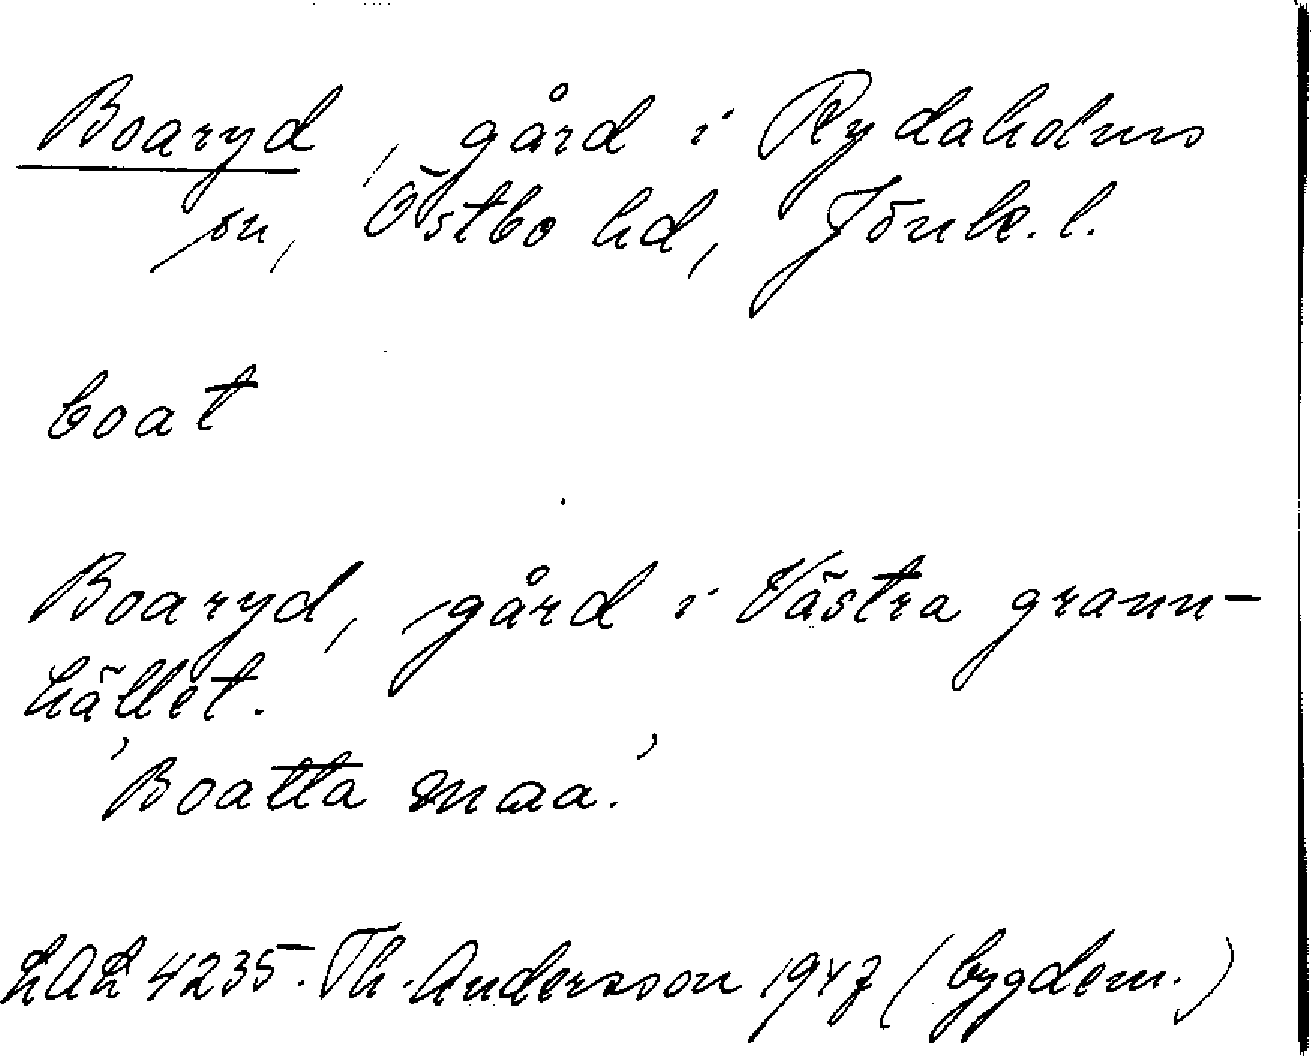 Boaryd, gård i Rydaholms
sn, Östbo hd, Jönk. l.
boat
Boaryd, gård i Västra grann-
hållet.
'Boatta maa.'
LAL 4235. Th. Andersson 1947 (bygdem.)